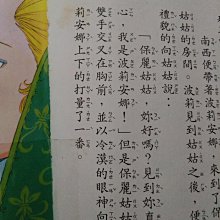 南西便帶著波莉安娜來到
姑姑的房間。波莉見到姑姑之後,便
禮貌的向姑姑說:
「保麗姑姑,妳好嗎?見到妳真
心,我是波莉安娜!」但是保麗姑姑
雙手交叉在胸前,並以冷漠的眼神向
莉安娜上下的打量了一番。